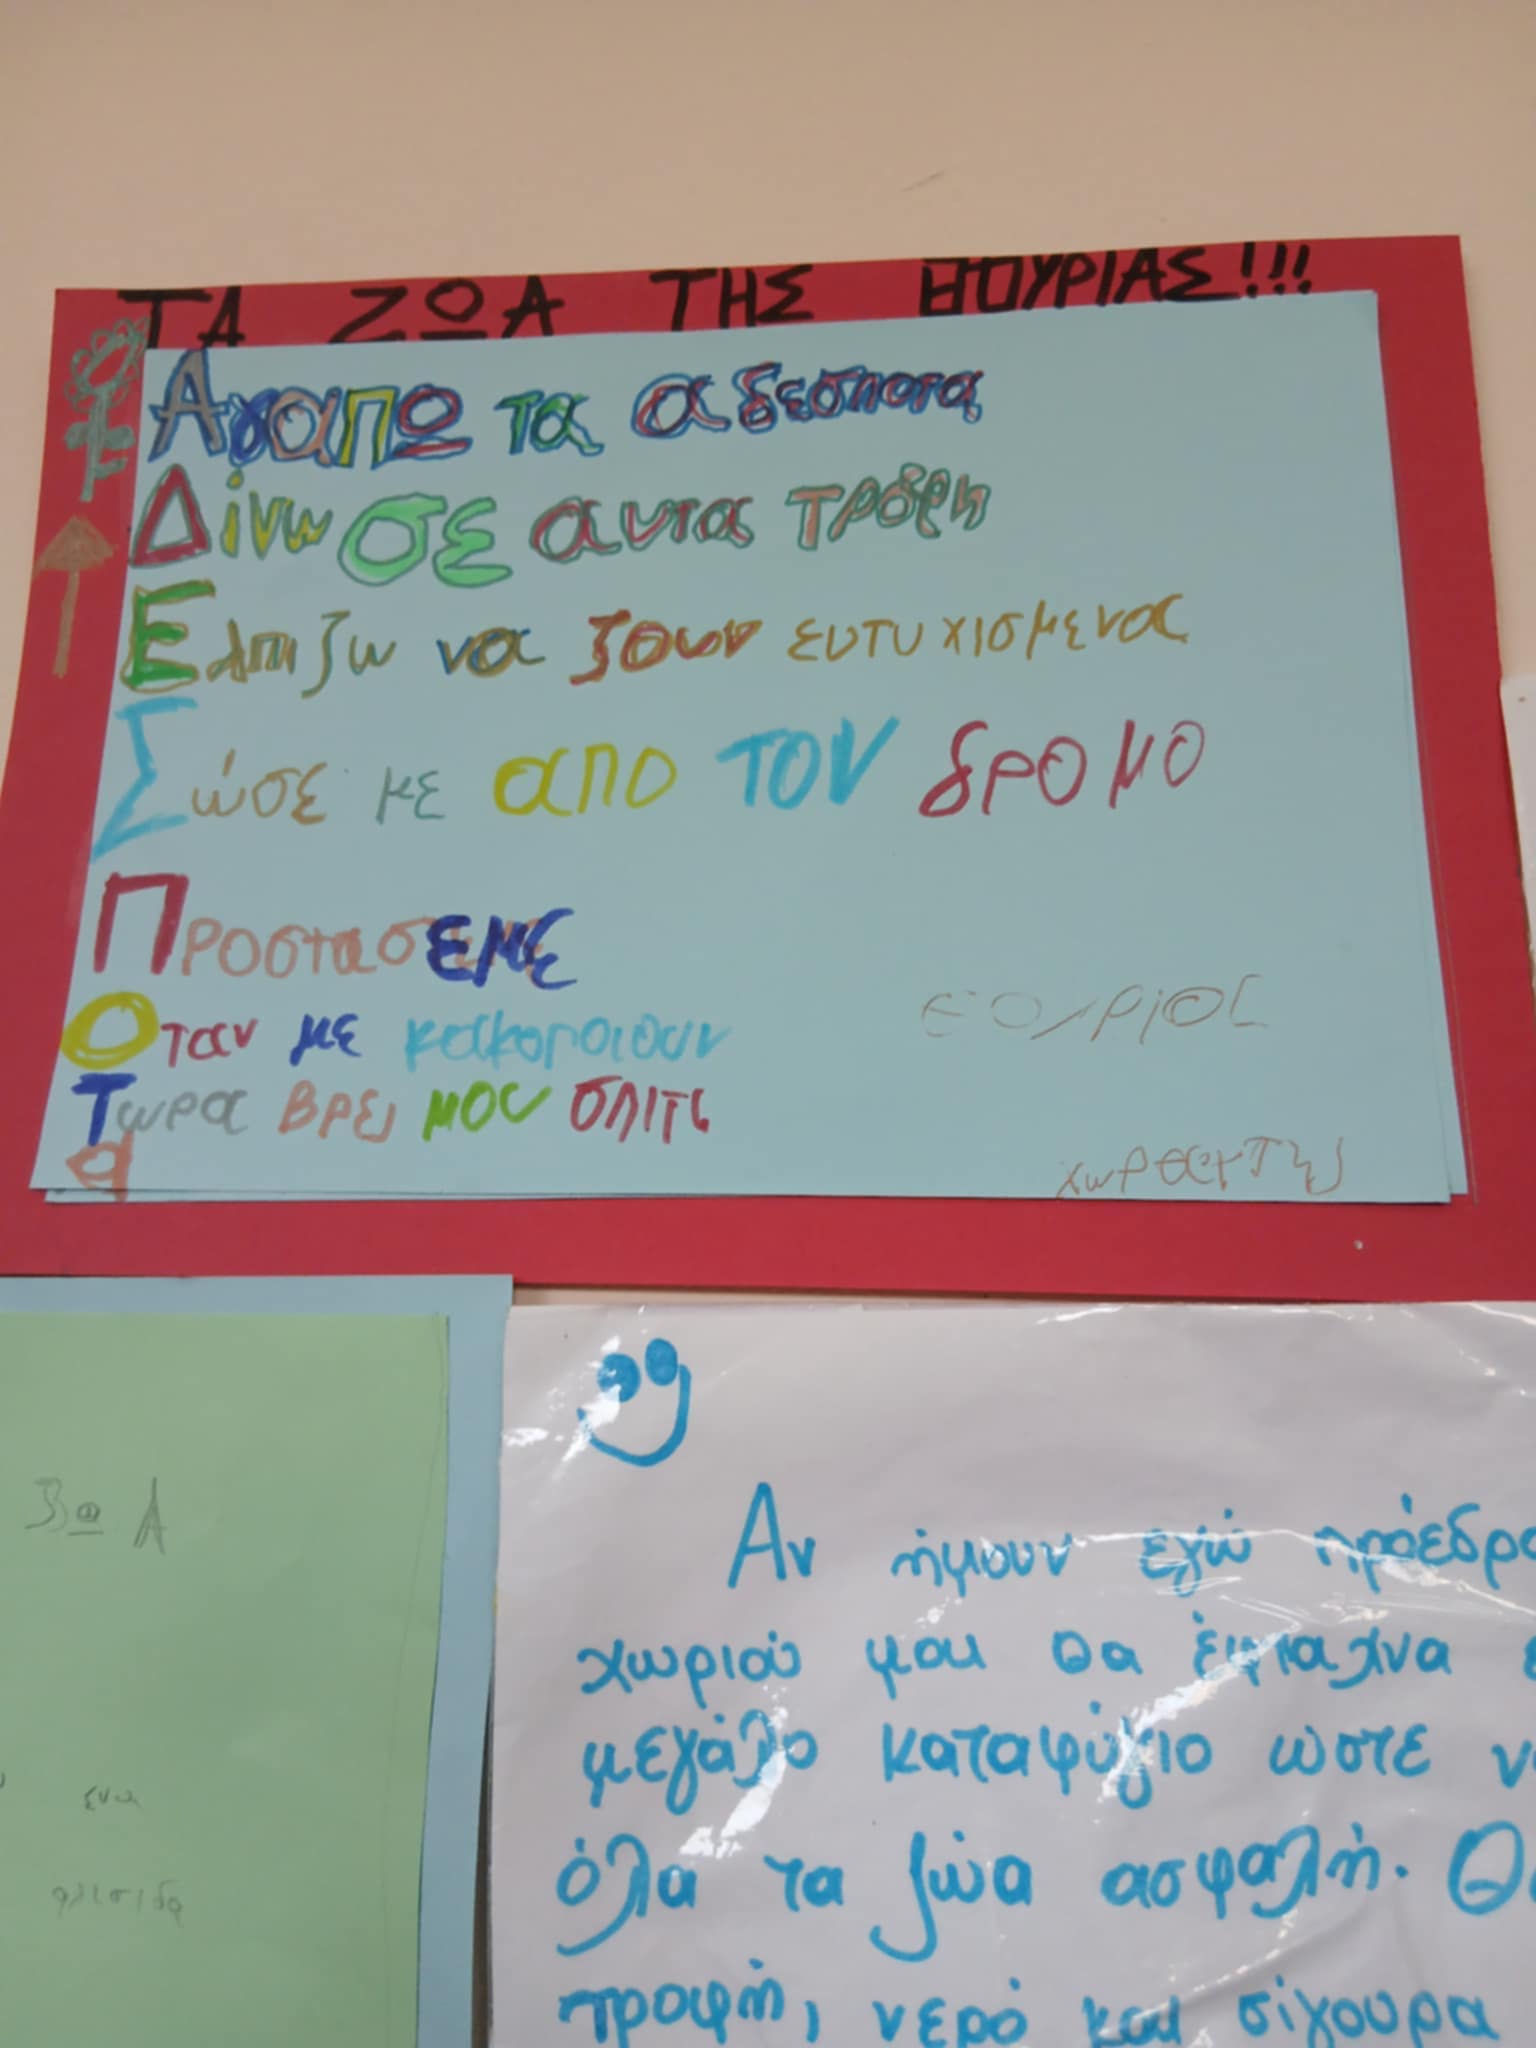 ΤΑ ΖΩΑ ΤΗΣ ΘΟΥΡΙΑΣ!!!
Αγαπω τα αδεσποτα
Δίνω σε αυτα τροφη
Ελπιζω να ζουν ευτυχισμενα
Σώσε με απο τον δρομο
Προστασεμε
Οταν με κακοποιουν
Τωρα βρει μου σπιτι
α
ΖΩΑ
ενα
Αν ήμουν εγώ πρόεδρο
χωριού μου θα έφτιαχνα ε
μεγάλο καταφύγιο ώστε ν
όλα τα ζώα ασφαλή. Θα
τροφή, νερό και σίγουρα